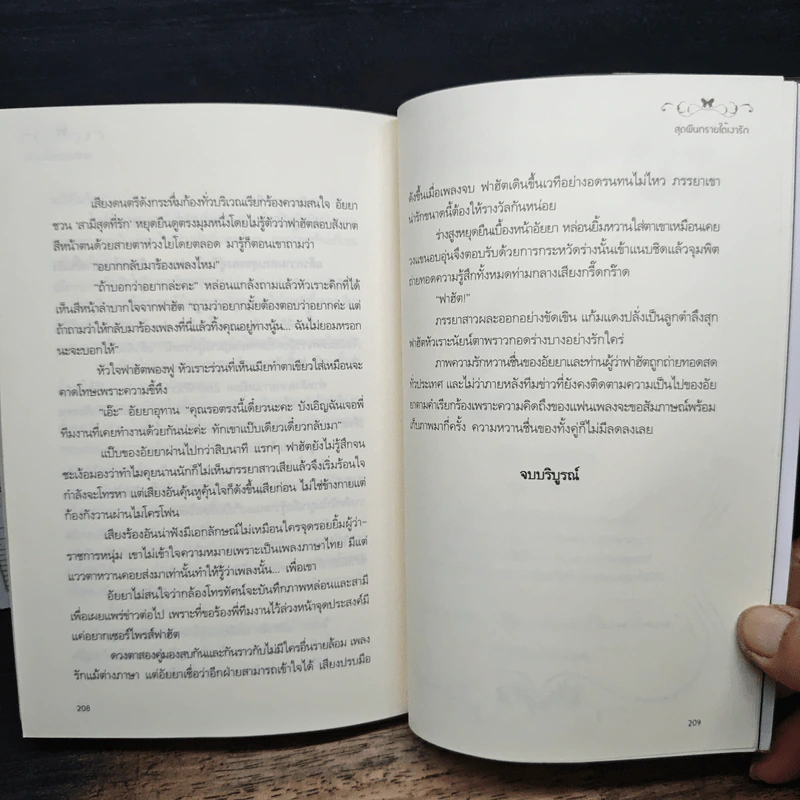 เสียงดนตรีดังกระหึ่มก้องทั่วบริเวณเรียกร้องความสนใจ อัยยา
ชวน ‘สามีสุดที่รัก’ หยุดยืนดูตรงมุมหนึ่งโดยไม่รู้ตัวว่าฟาฮัตลอบสังเกต
สีหน้าตนด้วยสายตาห่วงใยโดยตลอด มารู้ก็ตอนเขาถามว่า
“อยากกลับมาร้องเพลงไหม”
“ถ้าบอกว่าอยากล่ะคะ” หล่อนแกล้งถามแล้วหัวเราะคิกที่ได้
เห็นสีหน้าลำบากใจจากฟาฮัต “ถามว่าอยากมั้ยต้องตอบว่าอยากค่ะ แต่
ถ้าถามว่าให้กลับมาร้องเพลงที่นี่แล้วทิ้งคุณอยู่ทางนู้น... ฉันไม่ยอมหรอก
นะจะบอกให้”
หัวใจฟาฮัตพองฟู หัวเราะร่วนที่เห็นเมียทำตาเขียวใส่เหมือนจะ
คาดโทษเพราะความขี้หึง
“เอ๊ะ” อัยยาอุทาน “คุณรอตรงนี้เดี๋ยวนะคะ บังเอิญฉันเจอพี่
ทีมงานที่เคยทำงานด้วยกันน่ะค่ะ ทักเขาแป๊บเดียวเดี๋ยวกลับมา”
แป๊บของอัยยาผ่านไปกว่าสิบนาที แรกๆ ฟาฮัตยังไม่รู้สึกจน
ชะเง้อมองว่าทำไมคุยนานนักก็ไม่เห็นภรรยาสาวเสียแล้วจึงเริ่มร้อนใจ
กำลังจะโทรหา แต่เสียงอันคุ้นหูคุ้นใจก็ดังขึ้นเสียก่อน ไม่ใช่ข้างกายแต่
ก้องกังวานผ่านไมโครโฟน
เสียงร้องอันน่าฟังมีเอกลักษณ์ไม่เหมือนใครจุดรอยยิ้มผู้ว่า-
ราชการหนุ่ม เขาไม่เข้าใจความหมายเพราะเป็นเพลงภาษาไทย มีแต่
แววตาหวานคอยส่งมาเท่านั้นทำให้รู้ว่าเพลงนั้น... เพื่อเขา
อัยยาไม่สนใจว่ากล้องโทรทัศน์จะบันทึกภาพหล่อนและสามี
เพื่อเผยแพร่ข่าวต่อไป เพราะที่ขอร้องพี่ทีมงานไว้ล่วงหน้าจุดประสงค์มี
แค่อยากเซอร์ไพรส์ฟาฮัต
ดวงตาสองคู่มองสบกันและกันราวกับไม่มีใครอื่นรายล้อม เพลง
รักแม้ต่างภาษา แต่อัยยาเชื่อว่าอีกฝ่ายสามารถเข้าใจได้ เสียงปรบมือ
208
สุดผืนทรายใต้เงารัก
ดังขึ้นเมื่อเพลงจบ ฟาฮัตเดินขึ้นเวทีอย่างอดรนทนไม่ไหว ภรรยาเขา
น่ารักขนาดนี้ต้องให้รางวัลกันหน่อย
ร่างสูงหยุดยืนเบื้องหน้าอัยยา หล่อนยิ้มหวานใส่ตาเขาเหมือนเคย
วงแขนอบอุ่นจึงตอบรับด้วยการกระหวัดร่างนั้นเข้าแนบชิดแล้วจุมพิต
ถ่ายทอดความรู้สึกทั้งหมดท่ามกลางเสียงกรี๊ดกร๊าด
“ฟาฮัต!”
ภรรยาสาวผละออกอย่างขัดเขิน แก้มแดงปลั่งเป็นลูกตำลึงสุก
ฟาฮัตหัวเราะนัยน์ตาพราวกอดร่างบางอย่างรักใคร่
ภาพความรักหวานชื่นของอัยยาและท่านผู้ว่าฟาฮัตถูกถ่ายทอดสด
ทั่วประเทศ และไม่ว่าภายหลังทีมข่าวที่ยังคงติดตามความเป็นไปของอัย
ยาตามคำเรียกร้องเพราะความคิดถึงของแฟนเพลงจะขอสัมภาษณ์พร้อม
เก็บภาพมากี่ครั้ง ความหวานชื่นของทั้งคู่ก็ไม่มีลดลงเลย
จบบริบูรณ์
209